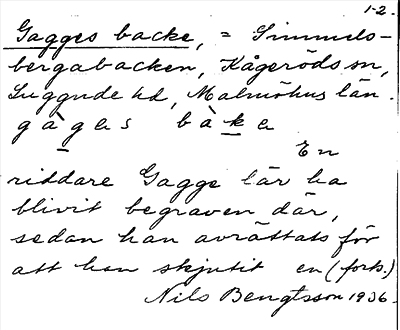 1-2.
Gagges backe, = Simmels-
bergabacken, Kågeröds sn,
Luggude hd, Malmöhus län.
gàgas bàke
En
riddare Gagge lär ha
blivit begraven där,
sedan han avrättats för
att han skjutit en (forts.)
Nils Bengtsson 1936.